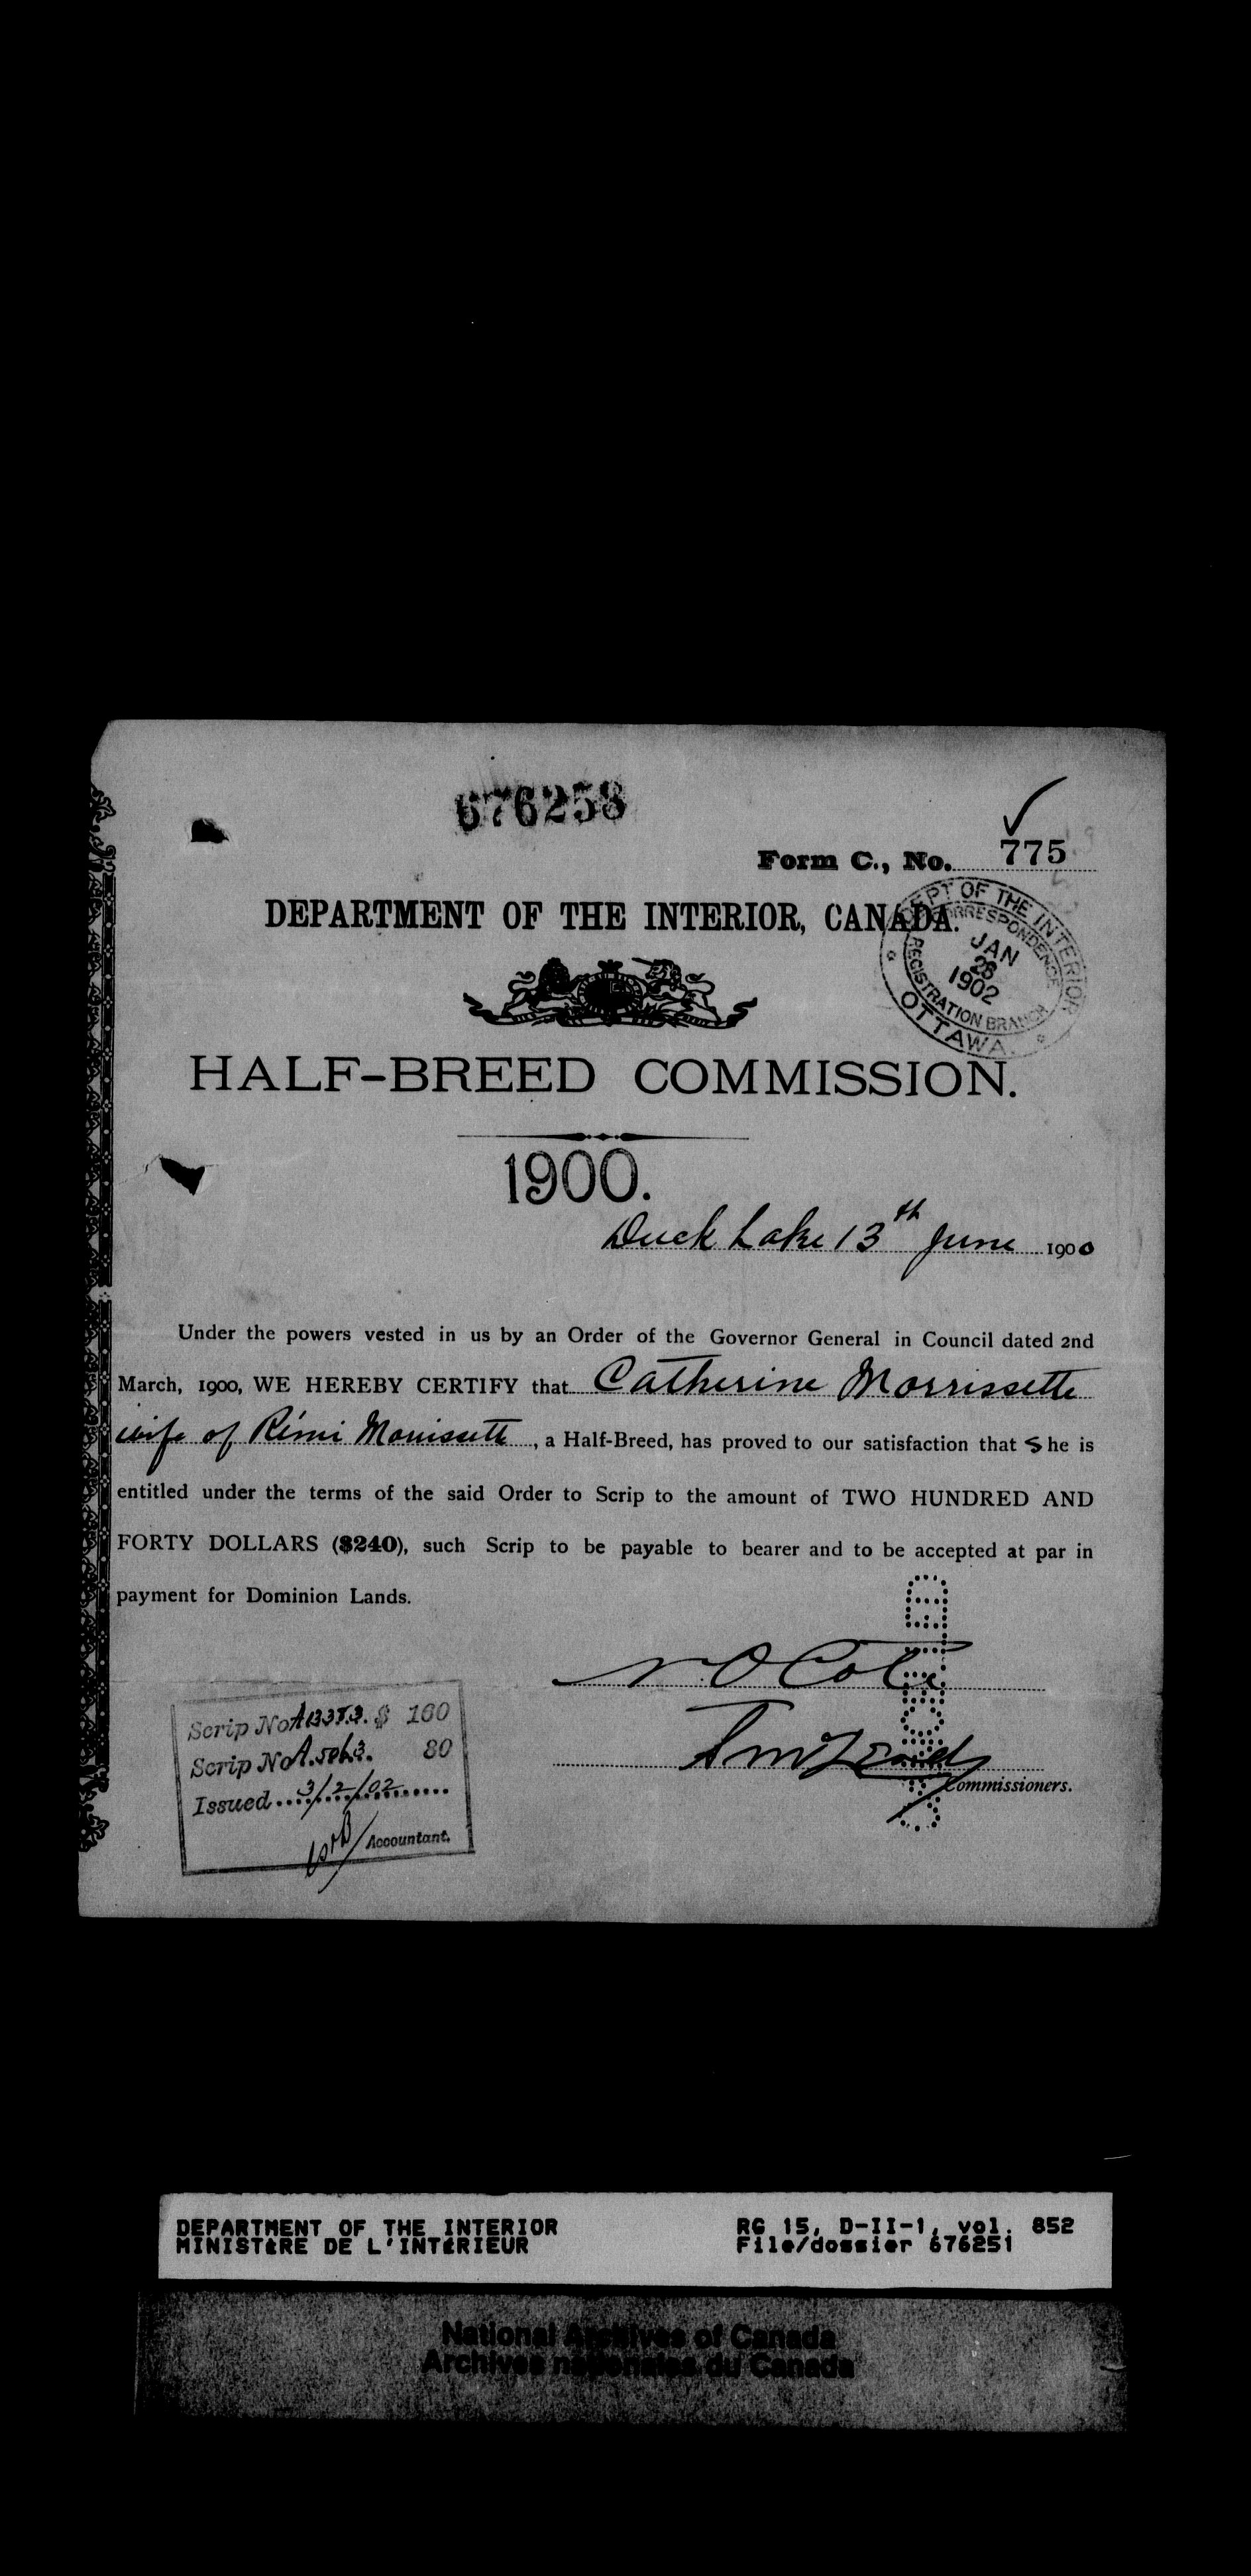 676258
Form C., No. 775
DEPARTMENT OF THE INTERIOR, CANADA.
DEPT OF THE INTERIOR
CORRESPONDENSE
JAN
28
1902
REGISTRATION BRANCH
OTTAWA.
HALF-BREED COMMISSION.
1900.
Duck Lake 13th June 1900
Under the powers vested in us by an Order of the Governor General in Council dated 2nd
March, 1900, WE HEREBY CERTIFY that Catherine Morrissette
wife of Rémi Morrissette, a Half-Breed, has proved to our satisfaction that S he is
entitled under the terms of the said Order to Scrip to the amount of TWO HUNDRED AND
FORTY DOLLARS ($240), such Scrip to be payable to bearer and to be accepted at par in
payment for Dominion Lands.
N O Coté
Commissioners.
Scrip No $ 160
Scrip No 80
Issued 3/2/02
Accountant.
DEPARTMENT OF THE INTERIOR
MINISTÈRE DE L'INTÉRIEUR
RG 15, D-II-1, vol. 852
File/dossier 676251
National Archives of Canada
Archives nationales du Canada